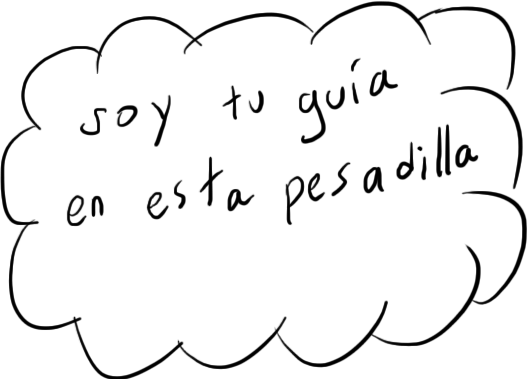 soy tu guía
en esta pesadilla